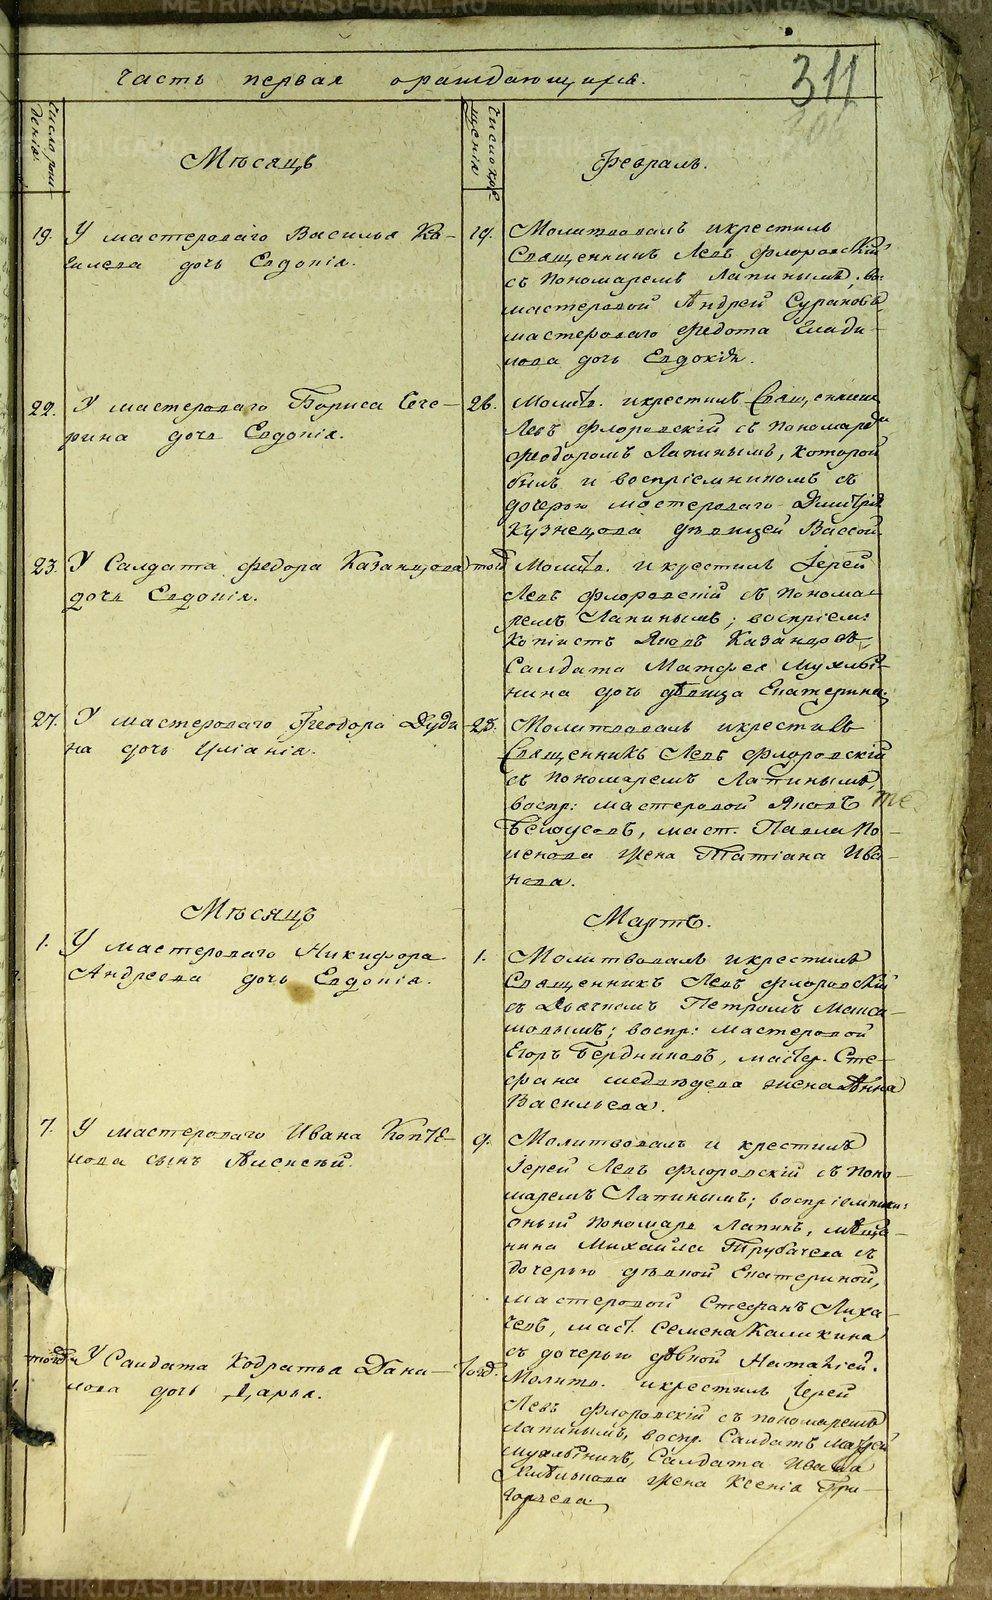 Часть первая о раждающихся.
311
Числа рож-
денія.
Мѣсяцъ
Число кре-
щенія
Февраль.
19. У мастероваго Василья Ко-
дочь Евдокія.
19. Молитвовалъ и крестилъ
Священникъ Левъ Флоровскій
съ пономаремъ Лапинымъ, во.
мастеровой Андрей Суряковъ,
мастероваго Федота
дочь Евдокія.
22. У мастероваго Бориса Сече-
рина дочь Евдокія.
26. Молитв. и крестилъ Священникъ
Левъ Флоровскій съ пономаремъ
Феодоромъ Лапинымъ, которой
былъ и воспріемникомъ съ
дочерью мастероваго Дмитрія
Кузнецова дѣвицей Вассой.
23. У Салдата Федора Казанцова
дочь Евдокія.
тогд Молитв. и крестилъ Іерей
Левъ Флоровскій съ понома-
ремъ Лапинымъ; воспріем:
копіистъ Яковъ Казанцовъ,
Салдата Матфея Мухлы-
нина дочь дѣвица Екатерина.
27. У мастероваго Феодора Дуди-
на дочь Иліанія.
28. Молитвовалъ и крестилъ
Священникъ Левъ Флоровскій
съ пономаремъ Лапинымъ,
воспр: мастеровой Яковъ
Белоусовъ, маст. Павла По-
жена Татіана Ива-
нова.
Мѣсяцъ
Мартъ.
1. У мастероваго Никифора
Андреева дочь Евдокія.
1. Молитвовалъ и крестилъ
Священникъ Левъ Флоровскій
съ Дьячкомъ Петромъ Макси-
мовымъ; воспр: мастеровой
Егоръ Бердниковъ, мастер. Сте-
фана Медвѣдева жена Анна
Васильева.
7. У мастероваго Ивана Копте-
лова сынъ Алексѣй.
9. Молитвовалъ и крестилъ
Іерей Левъ Флоровскій съ поно-
маремъ Лапинымъ; воспріемники:
оный пономарь Лапинъ, мѣща-
нина Михаила Трубачева съ
дочерью дѣвкой Екатериной,
мастеровой Стефанъ Лиха-
чевъ, маст. Семена Каликина
съ дочерью дѣвкой Наталіей.
тогд У Салдата Кодратья Дани-
лова дочь Дарья.
тогд. Молитв. и крестилъ Іерей
Левъ Флоровскій съ пономаремъ
Лапинымъ, воспр. Салдатъ Матфей
Мухлынинъ, Салдата Ивана
жена Ксенія Гри-
горьева.
METRIKI.GASO-URAL.RU